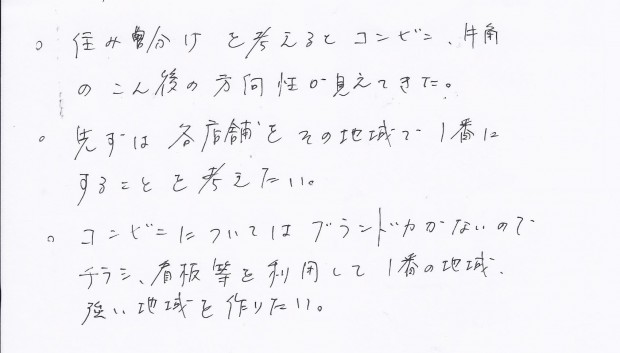 。住み分けを考えるとコンビニ、片角
のこん後の方向性が見えてきた。
。先ずは各店舗をその地域で1番に
することを考えたい。
。コンビニについてはブランド力がないので
チラシ、看板等を利用して1番の地域、
強い地域を作りたい。